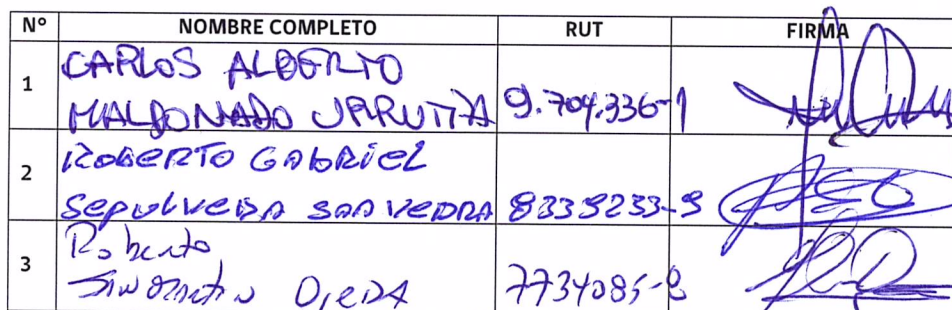 N° NOMBRE COMPLETO RUT FIRMA
1 CARLOS ALBERTO
MALDONADO URRUTIA 9.704.336-1
2 ROBERTO GABRIEL
SEPULVEDA SAAVEDRA 8339233-9
3 Roberto
OJEDA 7734085-8